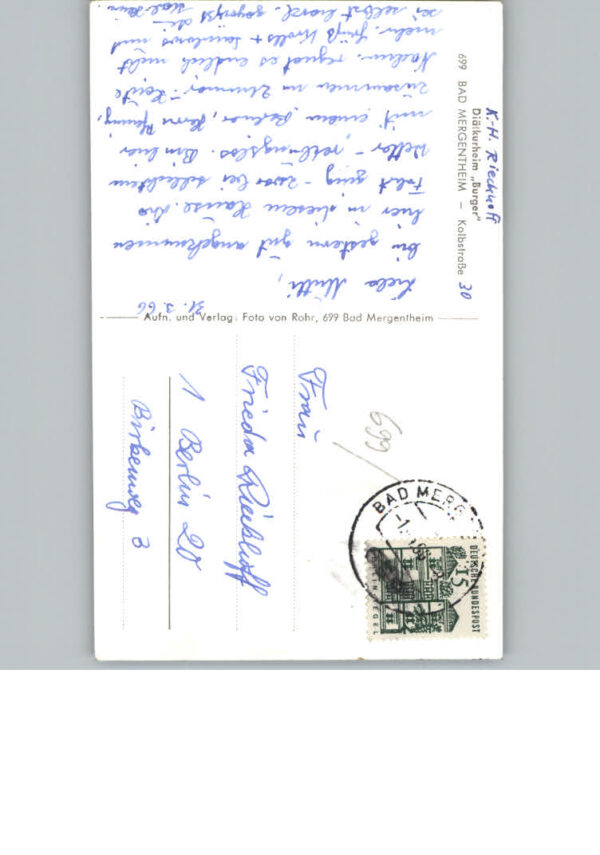 K.-H. Rieckhoff
Diätkurheim „Burger"
699 BAD MERGENTHEIM — Kolbstraße 30
31. 3. 66
Liebe Mutti,
bin gestern gut angekommen
hier in diesem Hause. Die
Fahrt ging - zwar bei schlechtem
Wetter - reibungslos. Bin hier
mit einem Berliner, Herrn Pfennig,
zusammen im Zimmer. Heute
Nachm. regnet es endlich nicht
mehr. Grüß Krolls + und
sei selbst herzl. gegrüßt
Aufn. und Verlag: Foto von Rohr, 699 Bad Mergentheim
699
Frau
Frieda Rieckhoff
1 Berlin 20
Birkenweg 3
BAD MERG
DEUTSCHE BUNDESPOST
15
TEGEL